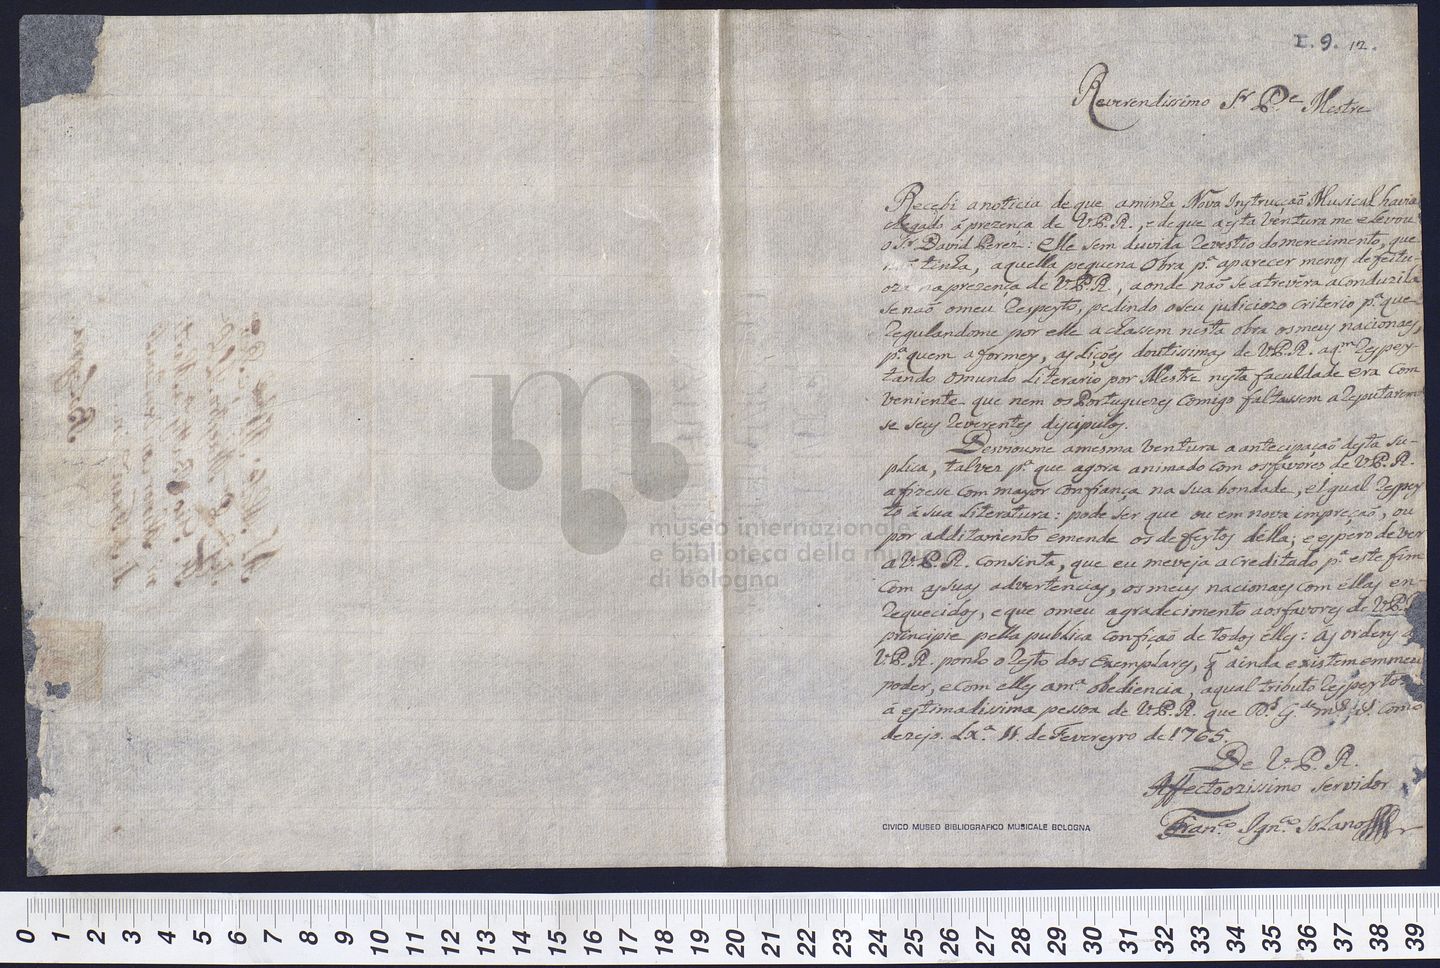 I. 9. 12.
Reverendissimo Sr. P.e Mestre
Recebi a noticia de que a minha Nova Instrucção Musical havia
chegado á prezença de V.P.R., e de que a esta ventura me elevou
o Sr. David Perez: Elle sem duvida revestio do merecimento, que
não tinha, aquella pequena Obra p.a aparecer menos defectu-
oza na prezença de V.P.R., aonde não se atrevêra a conduzila
se não o meu respeyto, pedindo o seu judiciozo criterio p.a que
regulandome por elle achassem nesta obra os meus nacionaes,
p.a quem a formey, as lições doutissimas de V.P.R. a q.m respey-
tando o mundo Literario por Mestre nesta faculdade era com
veniente que nem os Portuguezes comigo faltassem a reputarem
se seus reverentes discipulos.
Desvioume a mesma ventura a antecipação desta su-
plica, talvez p.a que agora animado com os favores de V.P.R.
a fizesse com mayor confiança na sua bondade, e igual respey
to á sua Literatura: pode ser que ou em nova impreção, ou
por additamento emende os defeytos della; e espero dever
a V.P.R. consinta, que eu me veja acreditado p.a este fim
com as suas advertencias, os meus nacionaes com ellas en-
requecidos, e que o meu agradecimento aos favores de V.P.R
principie pella publica confição de todos elles: Ás ordens d
V.P.R. ponho o resto dos exemplares, q̃ ainda existem em meu
poder, e com elles a m.a obediencia, a qual tributo respeyto
á estimadissima pessoa de V.P.R. que D.s G.de m.s a.s como
dezejo. Lx.a 11 de Fevereyro de 1765.
De V.P.R.
Affectuozissimo servidor
Fran.co Ign.co Solano
CIVICO MUSEO BIBLIOGRAFICO MUSICALE BOLOGNA
museo internazionale
e biblioteca della musica
di bologna
0 1 2 3 4 5 6 7 8 9 10 11 12 13 14 15 16 17 18 19 20 21 22 23 24 25 26 27 28 29 30 31 32 33 34 35 36 37 38 39